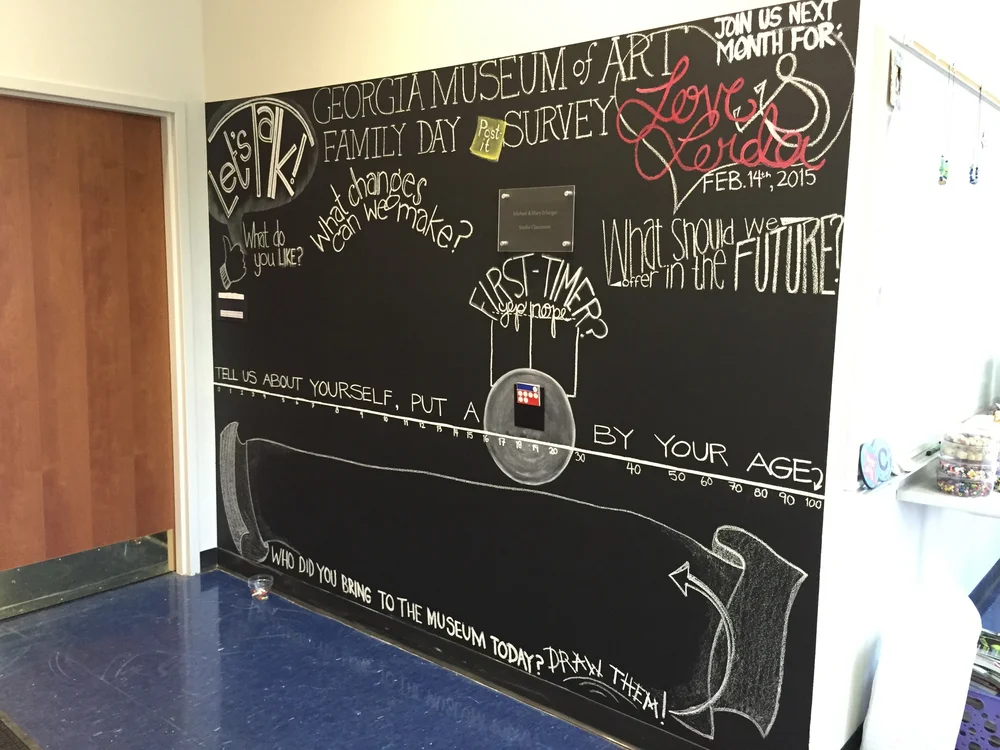 Let's TALK!
GEORGIA MUSEUM of ART
FAMILY DAY Post-it SURVEY
JOIN US NEXT
MONTH FOR:
Love is
FEB. 14th, 2015
What do
you LIKE?
What changes
can we make?
FIRST-TIMER?
yep nope
What Should We
offer in the FUTURE?
TELL US ABOUT YOURSELF, PUT A BY YOUR AGE
0 1 2 3 4 5 6 7 8 9 10 11 12 13 14 15 16 17 18 19 20 30 40 50 60 70 80 90 100
WHO DID YOU BRING TO THE MUSEUM TODAY? DRAW THEM!